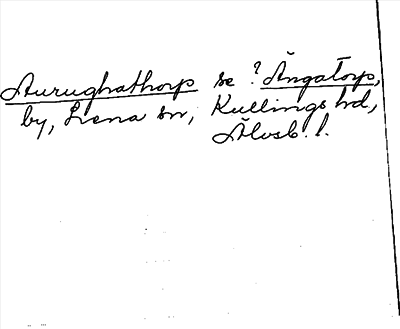 Aurughathorp se ? Ängatorp,
by, Lena sn, Kullings hd,
Älvsb. l.